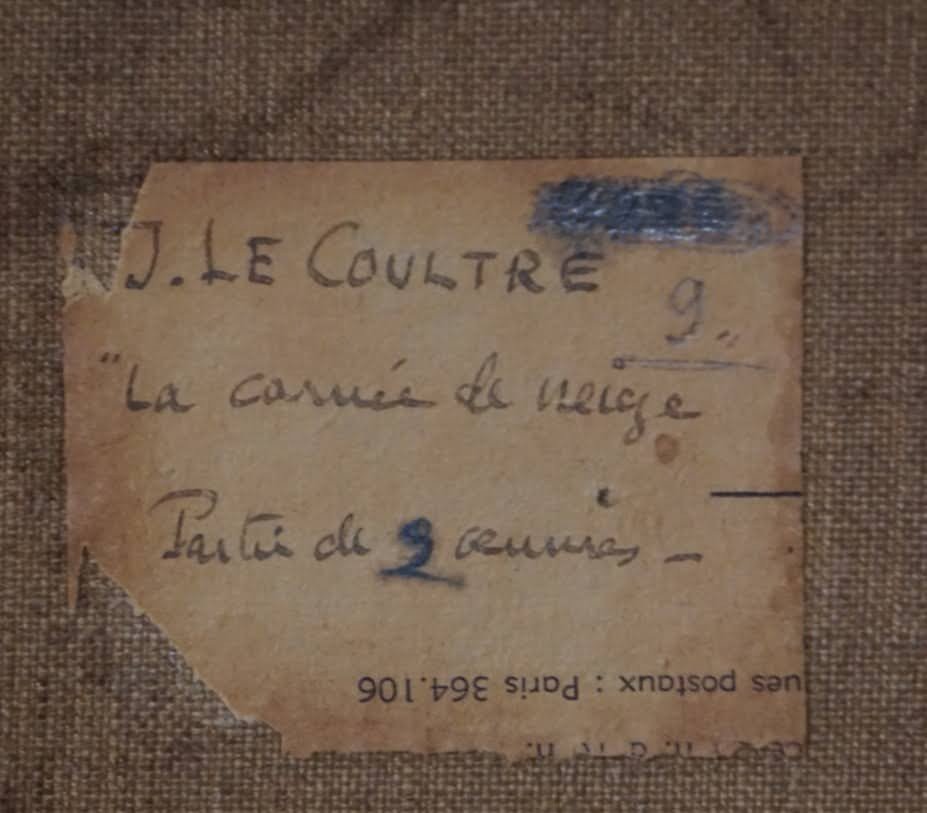 J. LE COULTRE
9
"La carrière de neige
Partie de 9 œuvres -
ues postaux : Paris 364.106